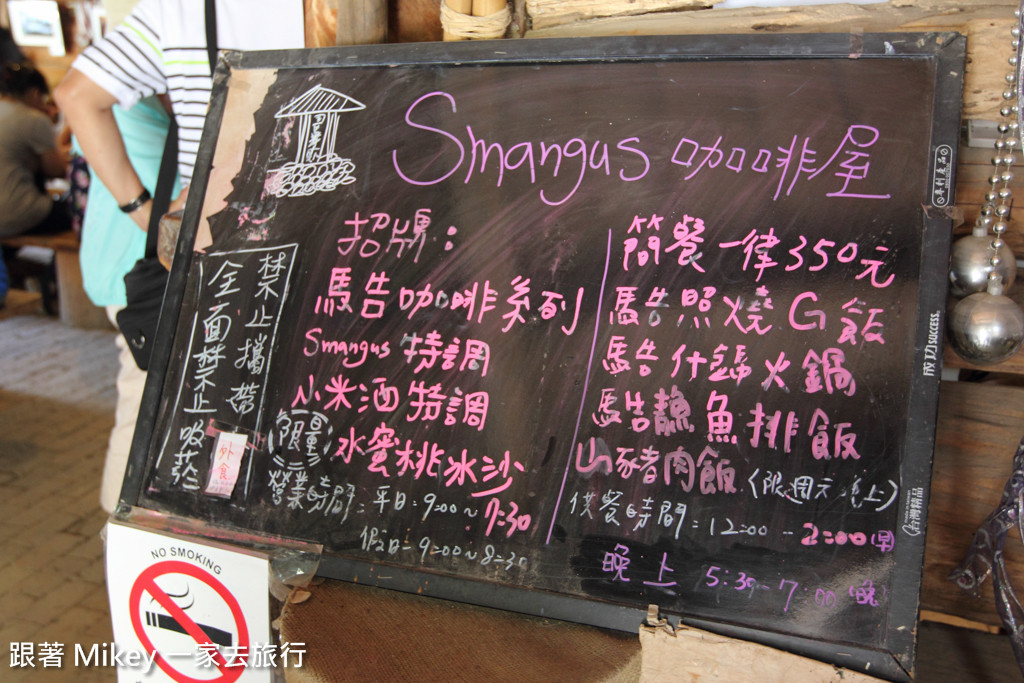 Smangus 咖啡屋
招牌：
馬告咖啡系列
Smangus 特調
小米酒特調
限量
水蜜桃冰沙
營業時間：平日：9:00~7:30
假日-9:00~8:30
簡餐一律350元
馬告照燒G飯
馬告什錦火鍋
馬告魚排飯
山豬肉飯(限週六晚上)
供餐時間：12:00-2:00
晚上 5:30-7:00
禁止攜帶
外食
全面禁止吸菸
成功success
台灣精品
NO SMOKING
跟著 Mikey 一家去旅行